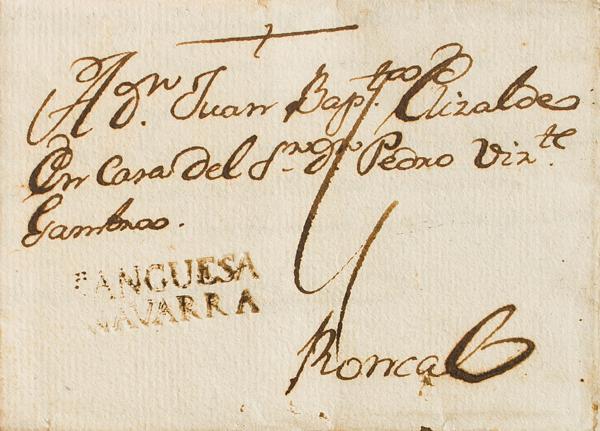 A Dn. Juan Bapta. Elizalde
En Casa del Sr. Dn. Pedro Vizte.
Gambra.
SANGUESA
NAVARRA
Roncal